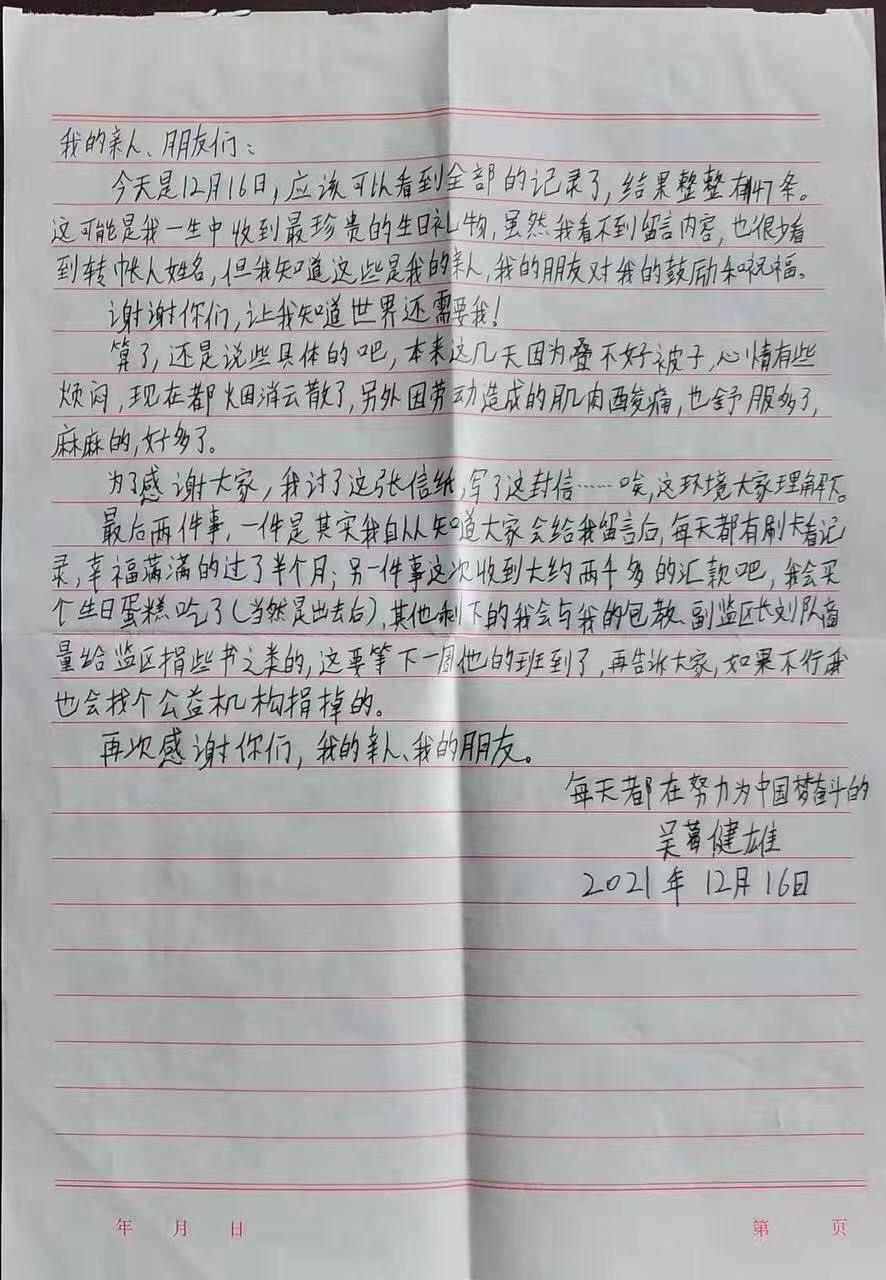 我的亲人、朋友们：
今天是12月16日，应该可以看到全部的记录了，结果整整有47条。
这可能是我一生中收到最珍贵的生日礼物，虽然我看不到留言内容，也很少看
到转帐人姓名，但我知道这些是我的亲人，我的朋友对我的鼓励和祝福。
谢谢你们，让我知道世界还需要我！
算了，还是说些具体的吧，本来这几天因为叠不好被子，心情有些
烦闷，现在都烟消云散了，另外因劳动造成的肌肉酸痛，也舒服多了，
麻麻的，好多了。
为了感谢大家，我讨了这张信纸，写了这封信……唉，这环境大家理解下。
最后两件事，一件是其实我自从知道大家会给我留言后，每天都有刷卡看记
录，幸福满满的过了半个月；另一件事这次收到大约两千多的汇款吧，我会买
个生日蛋糕吃了（当然是出去后），其他剩下的我会与我的包教、副监区长刘队商
量给监区捐些书之类的，这要等下一周他的班到了，再告诉大家，如果不行我
也会找个公益机构捐掉的。
再次感谢你们，我的亲人、我的朋友。
每天都在努力为中国梦奋斗的
吴葛健雄
2021年12月16日
年 月 日
第 页